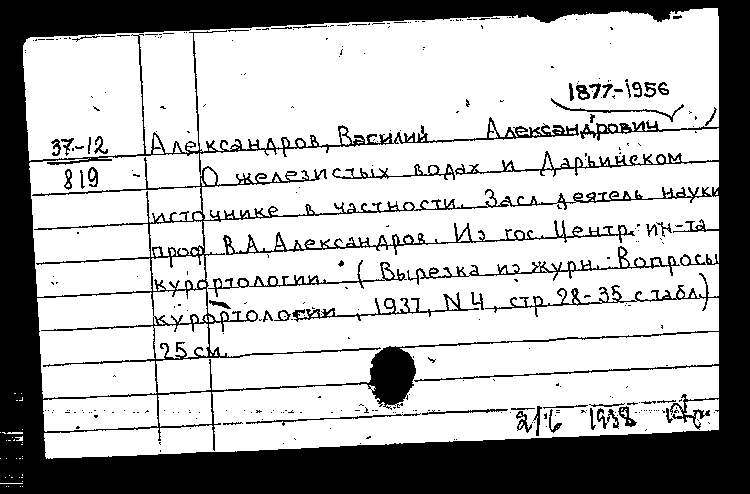 1877-1956
37-12 Александров, Василий Александрович
819 - О железистых водах и Дарьинском
источнике в частности. Засл. деятель науки
проф. В.А. Александров. Из гос. Центр. ин-та
курортологии. (Вырезка из журн.: Вопросы
курортологии, 1937, N 4, стр. 28-35 с табл.)
25 см.
2/6 1938